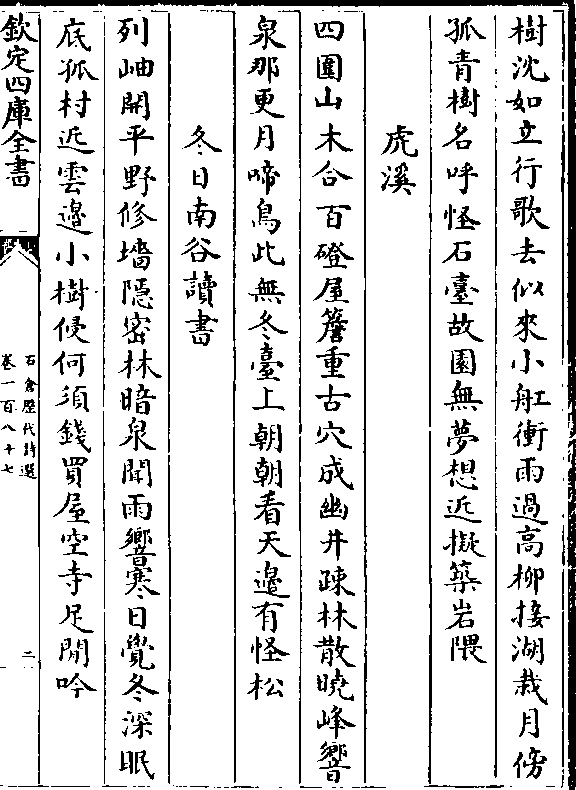 樹沈如立行歌去似來小舡衝雨過高柳接湖栽月傍
孤青樹名呼怪石臺故園無夢想近擬築岩隈
虎溪
四圍山木合百磴屋簷重古穴成幽井疎林散曉峰響
泉那更月啼鳥此無冬臺上朝朝看天邉有怪松
冬日南谷讀書
列岫開平野修墻隱密林暗泉聞雨響寒日覺冬深眠
底孤村近雲邉小樹侵何須錢買屋空寺足閒吟
欽定四庫全書
石倉歷代詩選
卷一百八十七
二